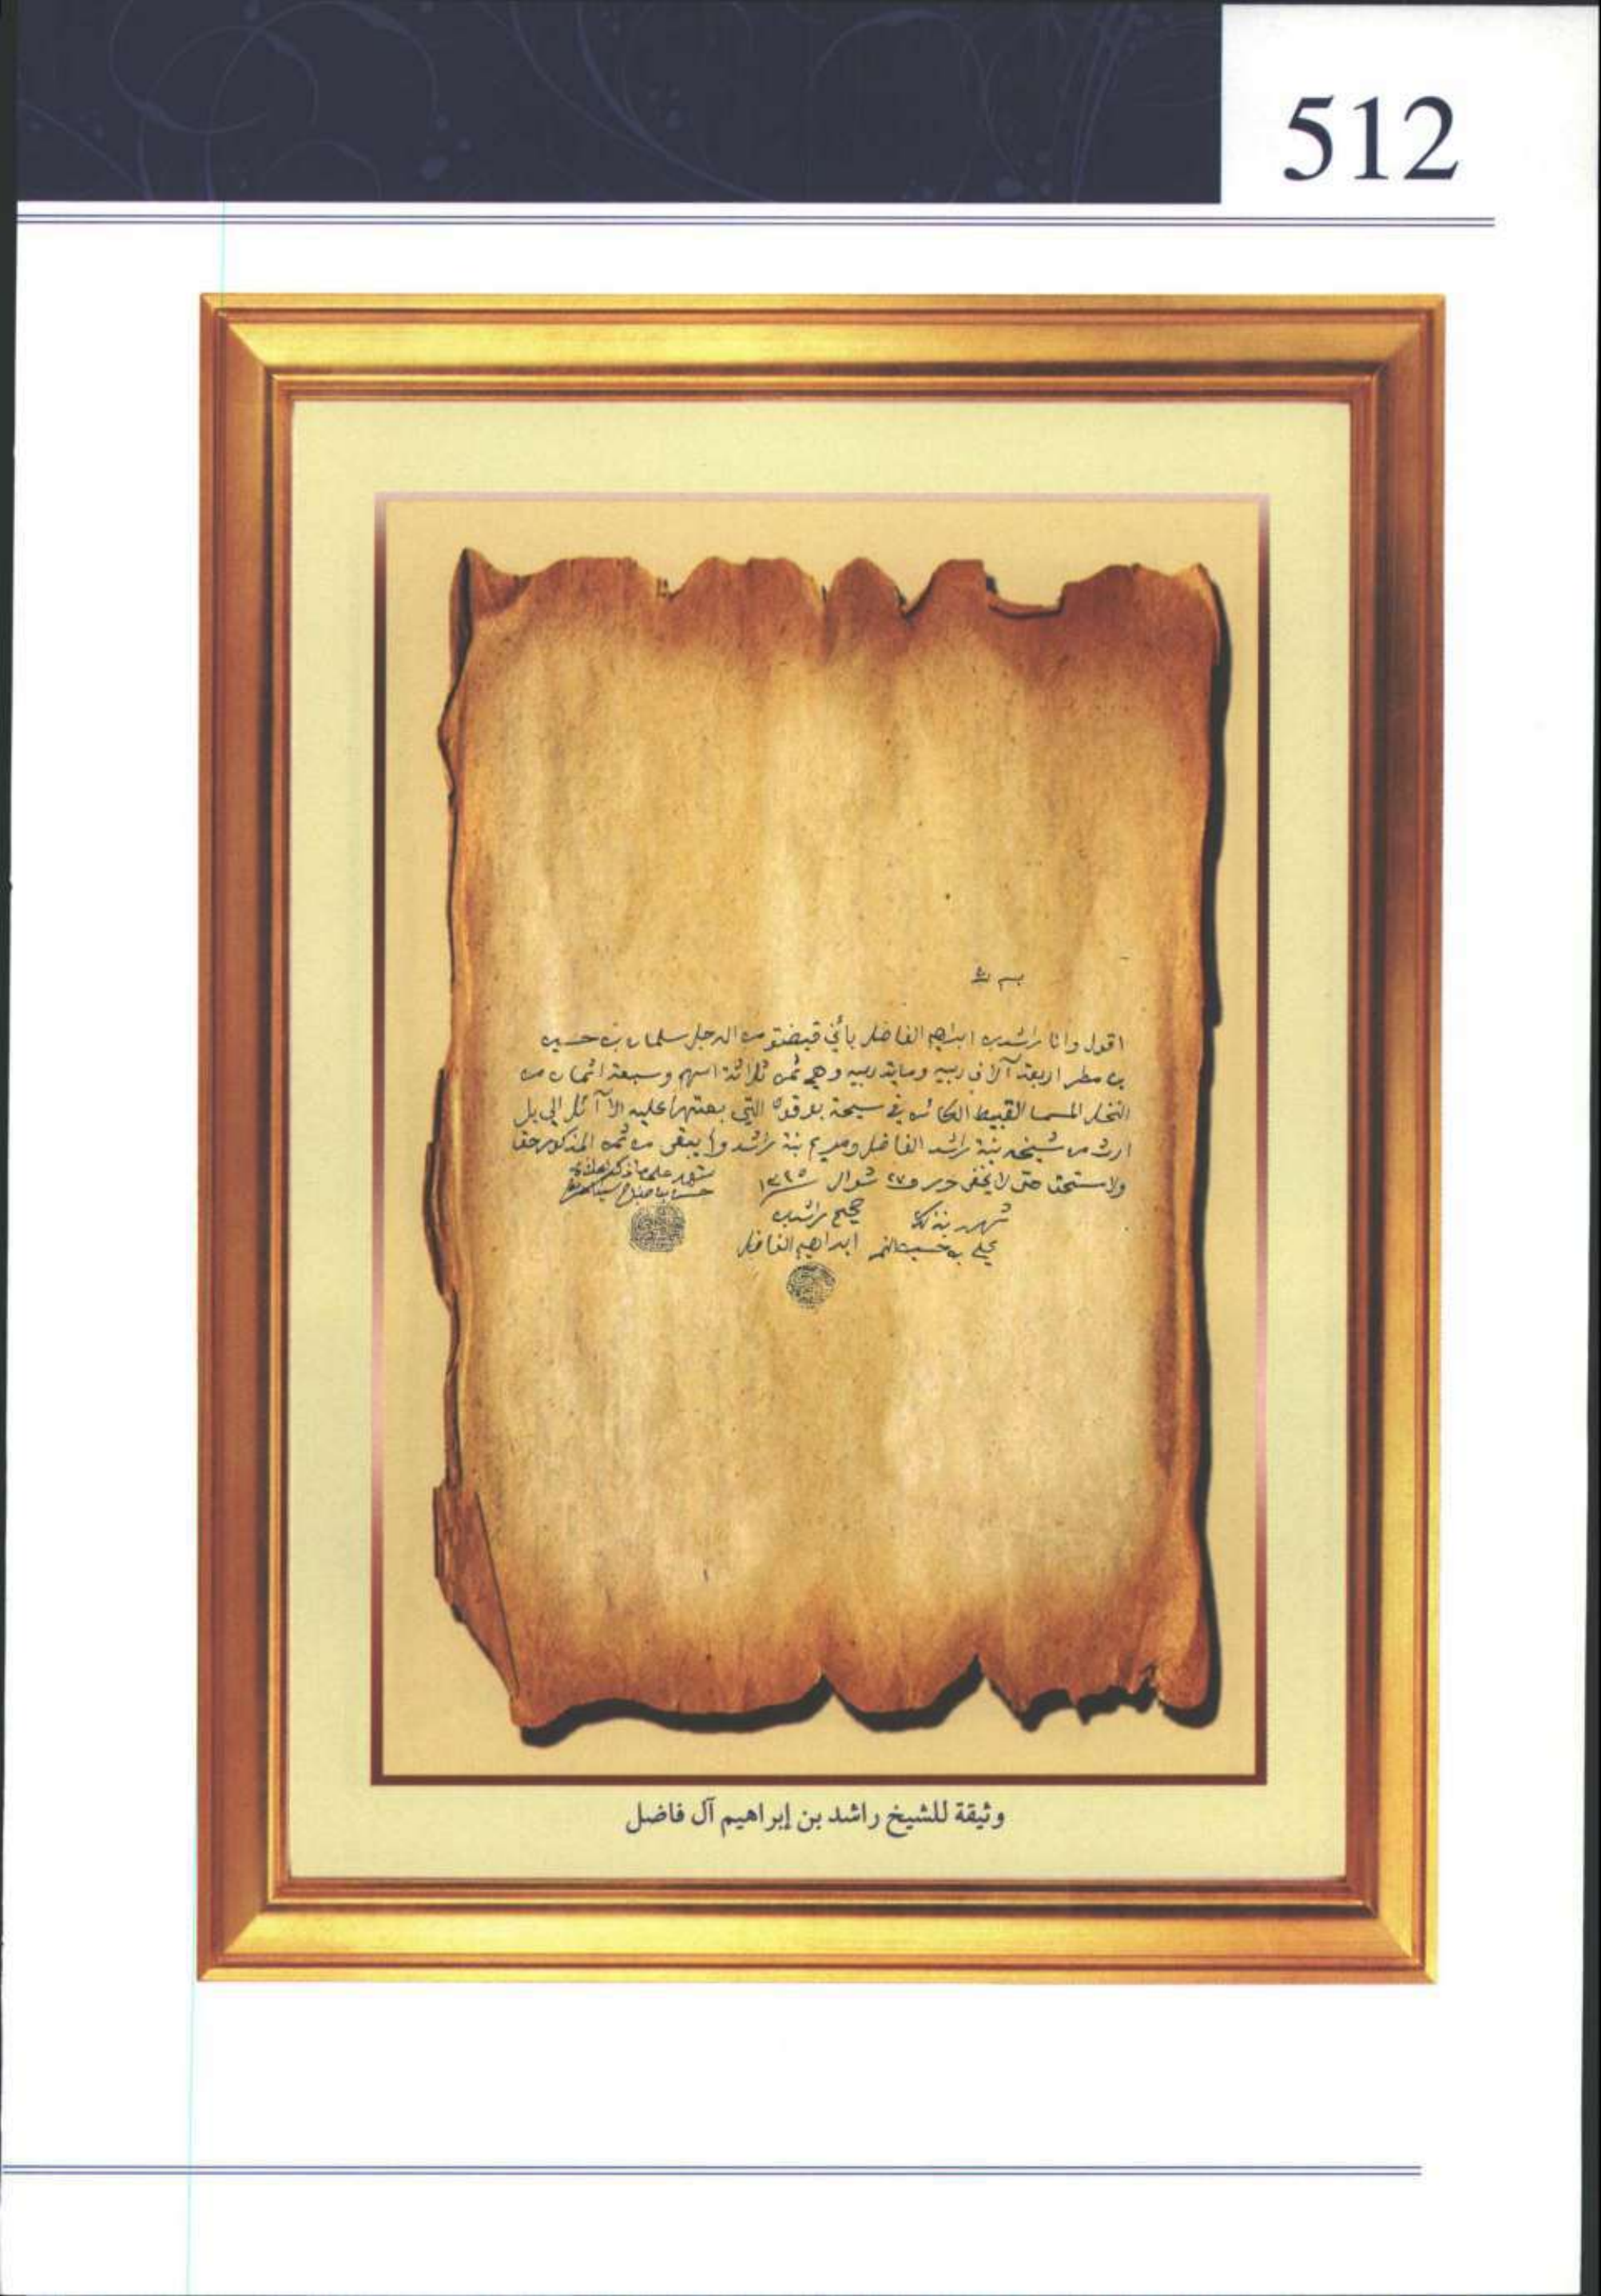 512
بسم الله
اقول وانا راشد بن ابراهيم الفاضل باني قبضتو من الرجل سلمان بن حسين
بن مطر اربعة آلاف ربيه وماية ربيه وهي ثمن ثلاثة اسهم وسبعة اثمان من
النخل المسما القبيط الكائن في سيحة التي بعتها عليه الآئل الي بل
ارث من شيخه بنة راشد الفاضل ومريم بنة راشد ولا يبقى من ثمنه المذكور حق
ولا مستحق حتى لا يخفى حرر في ٢٧ شوال
شهد على ما ذكر
حسن بن صباح
صحيح راشد بن
ابراهيم الفاضل
شهد بذلك
علي بن حسين
وثيقة للشيخ راشد بن إبراهيم آل فاضل